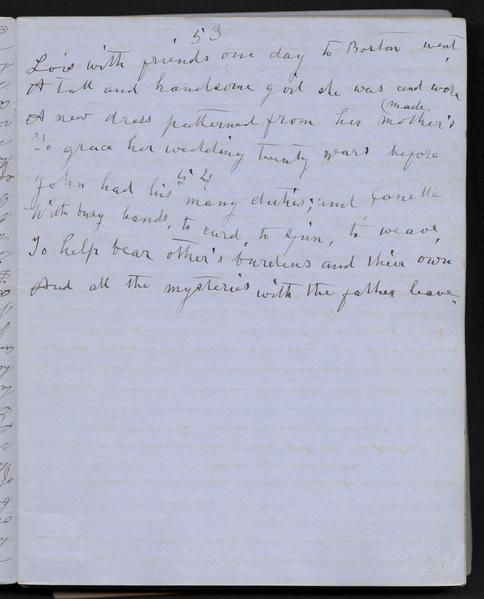 53
Lois with friends one day to Boston went
A tall and handsome girl she was and wore
(made
A new dress patterned from her mother's
To grace her wedding twenty years before
54
John had his many duties; and Janette
With busy hands, to card, to spin, to weave,
To help bear other's burdens and their own
And all the mysteries with the father leave.